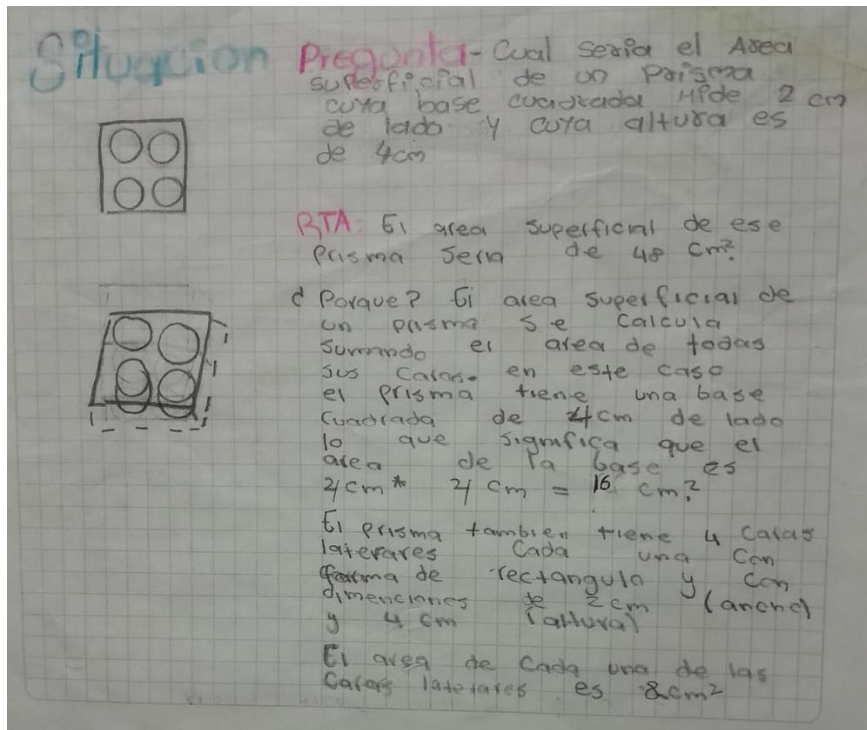 Situacion Pregunta - Cual seria el Area
superficial de un Prisma
cuya base cuadrada Mide 2 cm
de lado y cuya altura es
de 4cm
RTA: El area superficial de ese
Prisma seria de 48 cm²
¿Porque? El area superficial de
un prisma se calcula
sumando el area de todas
sus caras. en este caso
el prisma tiene una base
cuadrada de 4cm de lado
lo que significa que el
area de la base es
4cm * 4cm = 16 cm²
El prisma tambien tiene 4 caras
laterares cada una con
forma de rectangulo y con
dimenciones de 2cm (ancho)
y 4 cm (altura)
El area de cada una de las
caras laterares es 8cm²